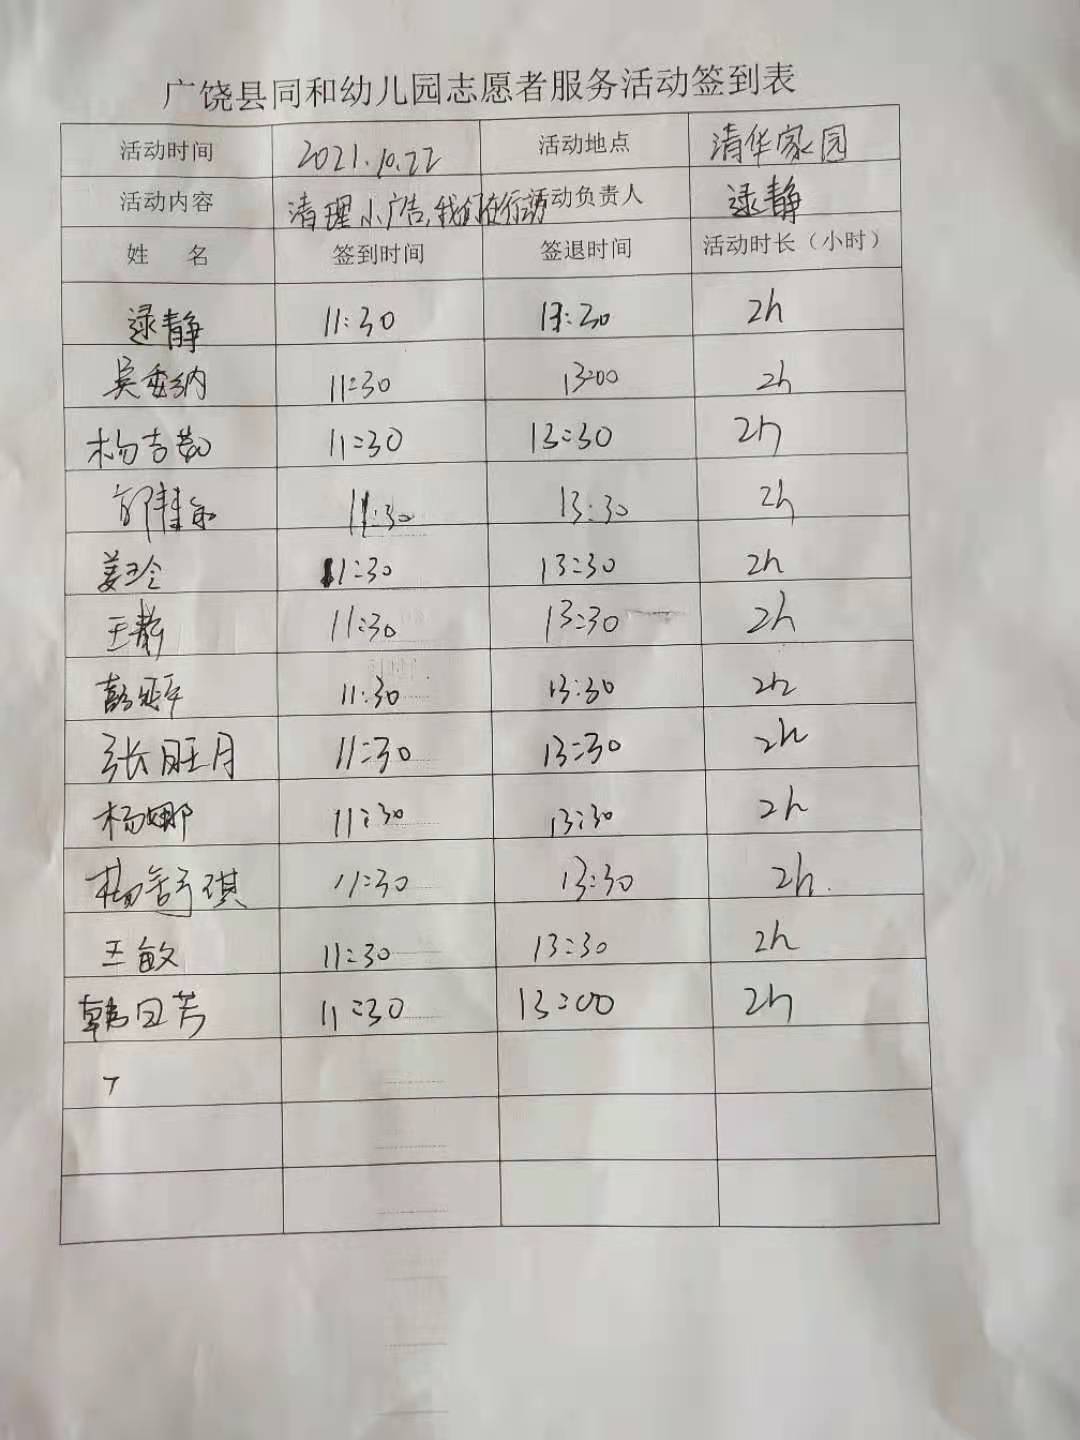 广饶县同和幼儿园志愿者服务活动签到表
活动时间 2021.10.22 活动地点 清华家园
活动内容 清理小广告,我们在行动 活动负责人 逯静
姓 名 签到时间 签退时间 活动时长（小时）
逯静 11:30 13:30 2h
吴 11:30 13:00 2h
杨吉 11:30 13:30 2h
11:30 13:30 2h
姜玲 11:30 13:30 2h
王静 11:30 13:30 2h
彭 11:30 13:30 2h
张旺月 11:30 13:30 2h
杨娜 11:30 13:30 2h
杨舒琪 11:30 13:30 2h.
王敏 11:30 13:30 2h
韩 芳 11:30 13:00 2h